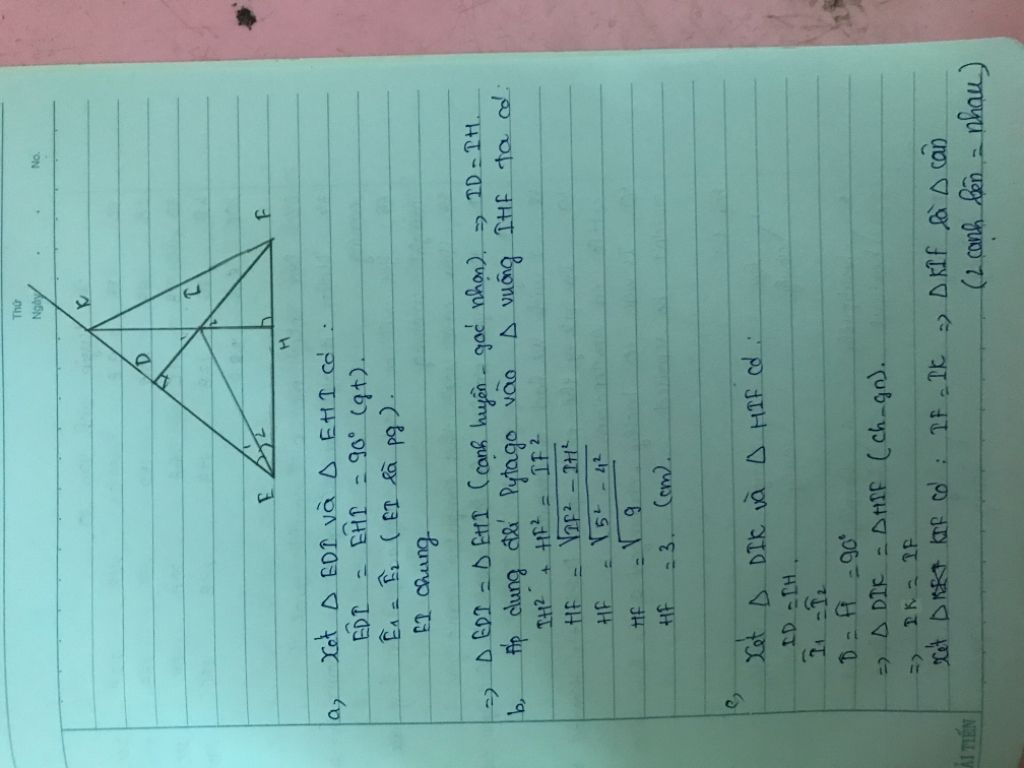 Thứ
Ngày
No.
K
D
I
F
E
H
1
2
a, Xét Δ EDI và Δ EHI có:
EDI = EHI = 90° (gt).
Ê1 = Ê2 (EI là pg).
EI chung
=> Δ EDI = Δ EHI (cạnh huyền - góc nhọn) => ID = IH.
b, Áp dụng đlí Pytago vào Δ vuông IHF ta có:
IH² + HF² = IF²
HF = √IF² - IH²
HF = √5² - 4²
HF = √9
HF = 3 (cm).
c, Xét Δ DIK và Δ HIF có:
ID = IH.
Î1 = Î2
D = H = 90°
=> Δ DIK = Δ HIF (ch-gn).
=> IK = IF
Xét Δ KIF có: IF = IK => Δ KIF là Δ cân
(2 cạnh bên = nhau)
ẢI TIẾN